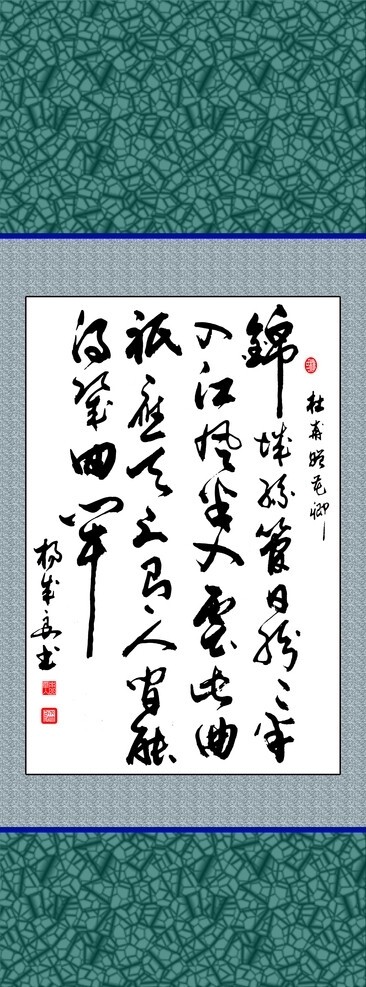 杜甫贈花卿
錦城絲管日紛々半
入江風半入雲此曲
祇應天上有人間能
得幾回聞
楊成書